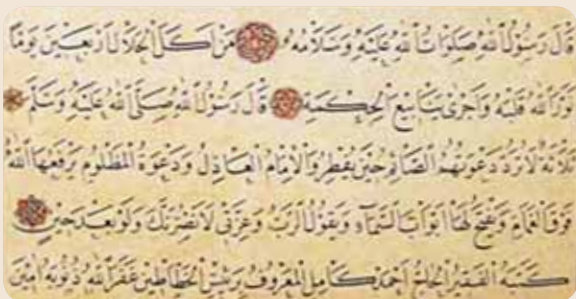 قَالَ رَسُوْلُ اللهِ صَلَوَاتُ اللهِ عَلَيْهِ وَسَلَامُهُ مَنْ اَكَلَ الْحَلَالَ اَرْبَعِيْنَ يَوْمًا
نَوَّرَ اللهُ قَلْبَهُ وَاَجْرٰى يَنَابِيْعَ الْحِكْمَةِ قَالَ رَسُوْلُ اللهِ صَلَّى اللهُ عَلَيْهِ وَسَلَّمَ
ثَلَاثَةٌ لَا تُرَدُّ دَعْوَتُهُمُ الصَّائِمُ حِيْنَ يُفْطِرُ وَالْاِمَامُ الْعَادِلُ وَدَعْوَةُ الْمَظْلُوْمِ يَرْفَعُهَا اللهُ
فَوْقَ الْغَمَامِ وَيَفْتَحُ لَهَا اَبْوَابَ السَّمَاءِ وَيَقُوْلُ الرَّبُّ وَعِزَّتِيْ لَاَنْصُرَنَّكَ وَلَوْ بَعْدَ حِيْنٍ
كَتَبَهُ الْفَقِيْرُ الْحَاجُّ اَحْمَدُ كَامِلِ الْمَعْرُوْفُ بِرَئِيْسِ الْخَطَّاطِيْنَ غَفَرَ اللهُ ذُنُوْبَهُ اٰمِيْنَ